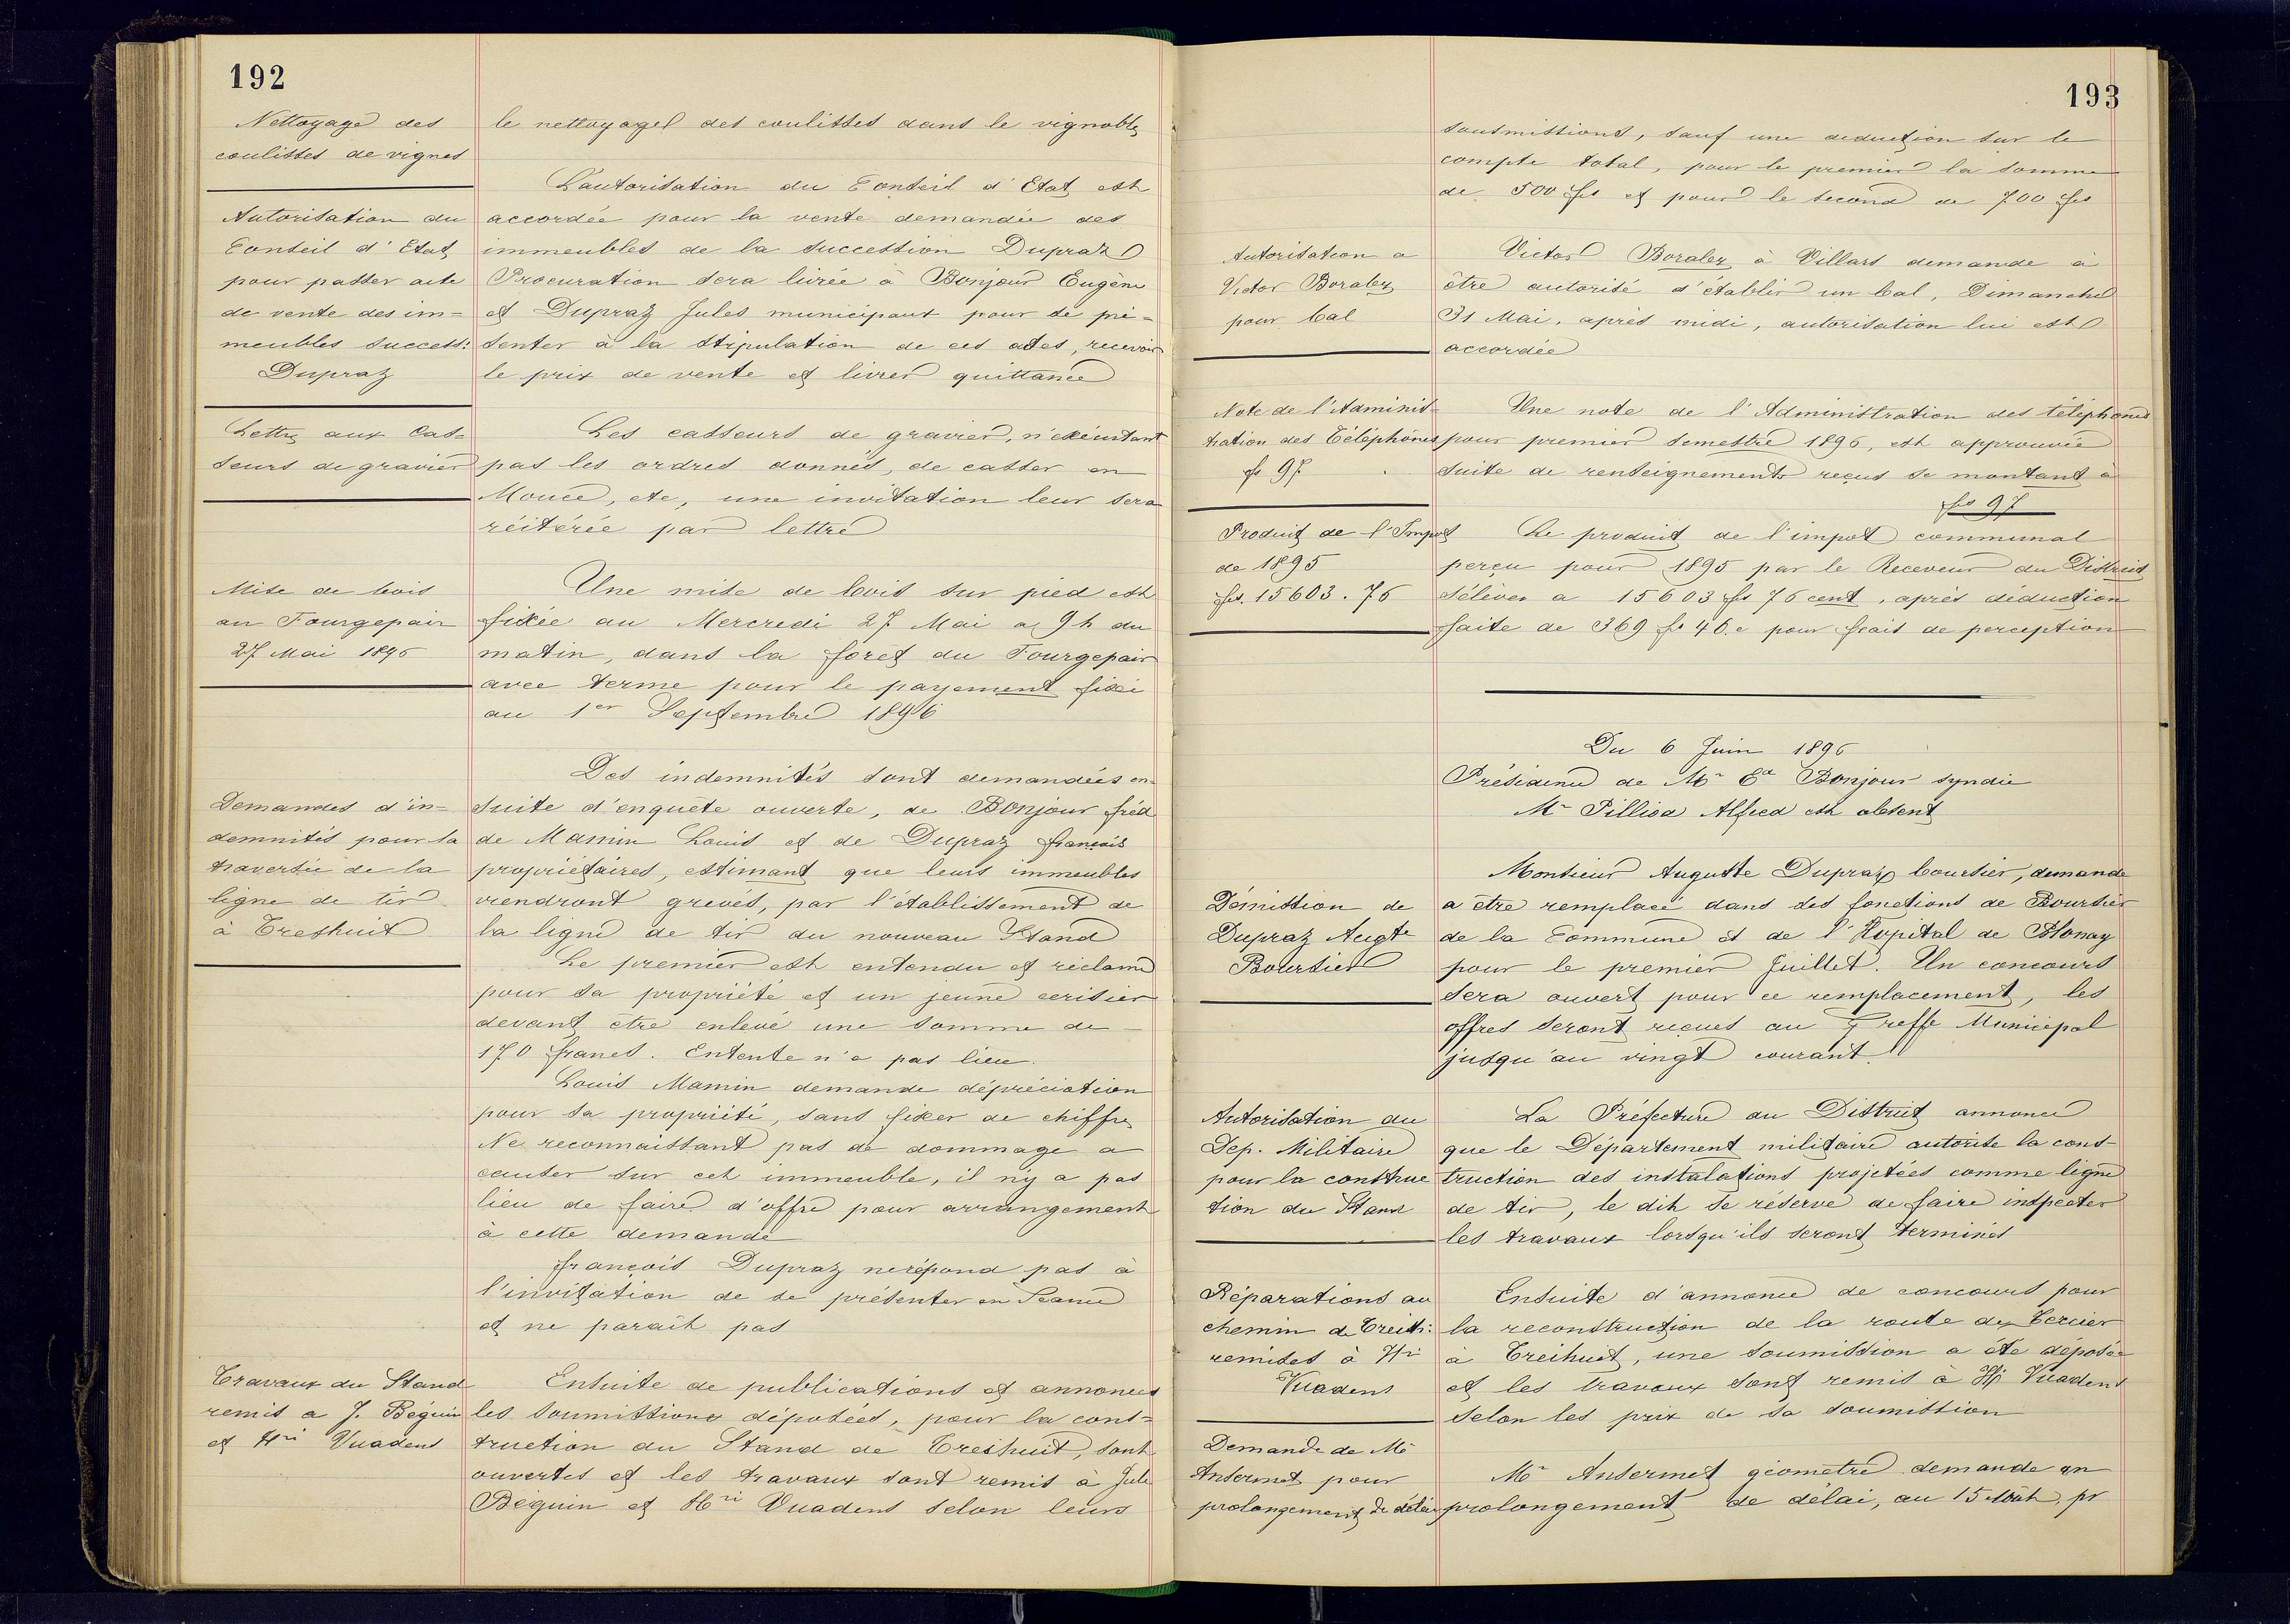 192
Nettoyage des
coulisses de vignes
le nettoyage des coulisses dans le vignoble
Autorisation du
Conseil d'Etat
pour passer acte
de vente des im=
meubles success:
Dupraz
L'autorisation du Conseil d'Etat est
accordée pour la vente demandée des
immeubles de la succession Dupraz
Procuration sera livrée à Bonjour Eugène
et Dupraz Jules municipaux pour se pré=
senter à la stipulation de ces actes, recevoir
le prix de vente et livrer quittance
Lettre aux cas=
seurs de gravier
Les casseurs de gravier, n'exécutant
pas les ordres donnés, de casser en
Mouce, etc, une invitation leur sera
réitérée par lettre
Mise de bois
au Fourgepair
27 Mai 1896
Une mise de bois sur pied est
fixée au Mercredi 27 Mai a 9 h du
matin, dans la foret du Fourgepair
avec terme pour le payement fixé
au 1er Septembre 1896
Demandes d'in=
demnités pour la
traversée de la
ligne de tir
à Treshuit
Des indemnités sont demandées en=
suite d'enquête ouverte, de Bonjour fréd
de Mamin Louis et de Dupraz françois
propriétaires, estimant que leurs immeubles
viendront grevés, par l'établissement de
la ligne de tir du nouveau Stand
Le premier est entendu et réclame
pour sa propriété et un jeune cerisier
devant être enlevé une somme de
170 francs. Entente n'a pas lieu.
Louis Mamin demande dépréciation
pour sa propriété, sans fixer de chiffre
Ne reconnaissant pas de dommage a
causer sur cet immeuble, il n'y a pas
lieu de faire d'offre pour arrangement
à cette demande
françois Dupraz ne répond pas à
l'invitation de se présenter en Séance
et ne parait pas
Travaux du Stand
remis a J. Béguin
et Hri Vuadens
Ensuite de publications et annonces
les soumissions déposées, pour la cons=
truction du Stand de Treshuit, sont
ouvertes et les travaux sont remis à Jule
Béguin et Hri Vuadens selon leurs
193
sousmissions, sauf une deduction sur le
compte total, pour le premier la somme
de 500 frs et pour le second de 700 frs
Autorisation a
Victor Boraley
pour bal
Victor Boraley à Villars demande à
être autorisé d'établir un bal, Dimanche
31 Mai, après midi, autorisation lui est
accordée
Note de l'Adminis=
tration des Téléphones
fs 97
Une note de l'Administration des téléphones
pour premier semestre 1896, est approuvée
suite de renseignements reçus se montant à
frs 97
Produit de l'Impot
de 1895
frs. 15603.76
Le produit de l'impot communal
perçu pour 1895 par le Receveur du District
s'élève a 15603 frs 76 cent, après déduction
faite de 369 fr 46 c pour frais de perception
Du 6 Juin 1896
Présidence de Mr Ed Bonjour syndic
Mr Pilliod Alfred est absent
Démission de
Dupraz Augte
Boursier
Monsieur Auguste Dupraz boursier, demande
a être remplacé dans des fonctions de Boursier
de la Commune et de l'Hopital de Blonay
pour le premier Juillet. Un concours
sera ouvert pour ce remplacement, les
offres seront reçues au Greffe Municipal
jusqu'au vingt courant.
Autorisation du
Dep. Militaire
pour la construc
tion du Stand
La Préfecture du District annonce
que le Département militaire autorise la cons=
truction des instalations projetées comme ligne
de tir, le dit se réserve de faire inspecter
les travaux lorsqu'ils seront terminés
Réparations au
chemin de Treits:
remises à Hri
Vuadens
Ensuite d'annonce de concours pour
la reconstruction de la route de Tercier
à Treihuit, une soumission a été déposée
et les travaux sont remis à Hri Vuadens
selon les prix de sa soumission
Demande de Mr
Ansermet pour
prolongement de délai
Mr Ansermet géomètre demande un
prolongement de délai, au 15 Août, pr